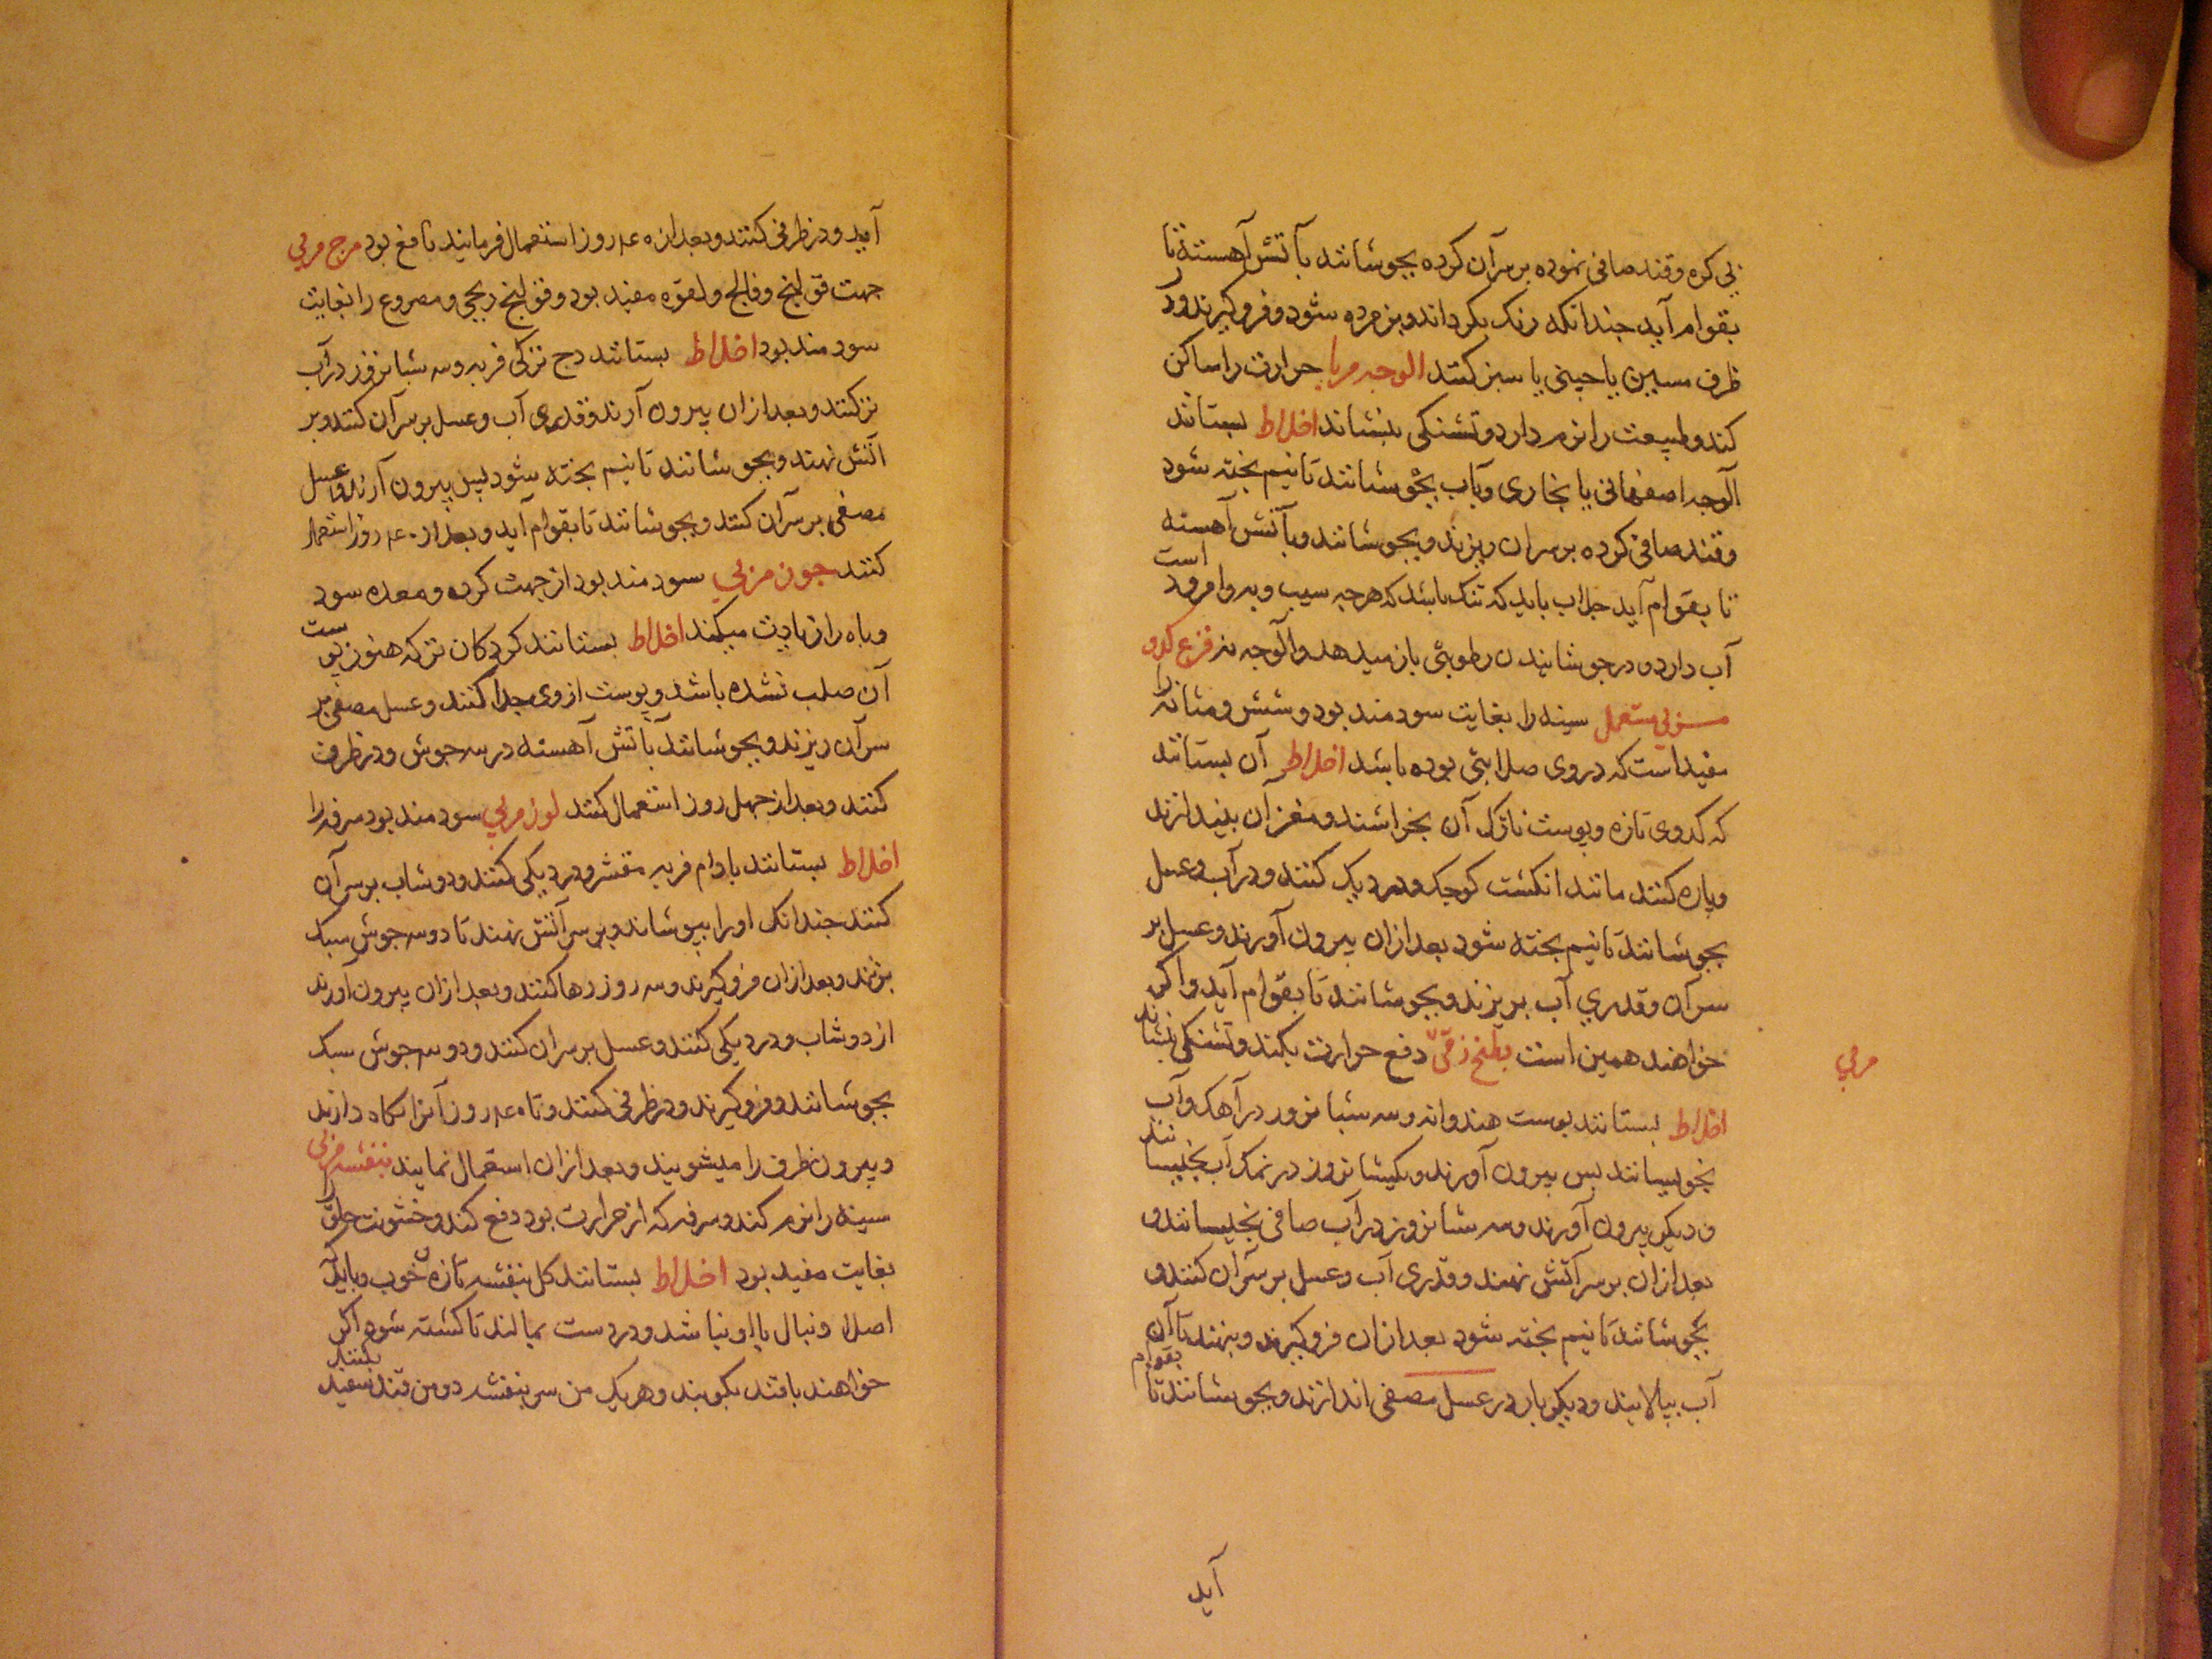 بی کره و قند صافی نموده بر سر آن کرده بجوشانند بآتش آهسته تا
بقوام آید چندانکه رنک بکرداند و پزمرده شود و فروکیرند و در
ظرف مسین یا چینی یا سبز کنند الوجه مربا حرارت را ساکن
کند و طبیعت را نرم دارد و تشنکی بنشاند اخلاط بستانند
آلوجه اصفهانی یا بخاری و بآب بجوشانند تا نیم پخته شود
و قند صافی کرده بر سر ان ریزند و بجوشانند و بآتش آهسته
تا بقوام آید جلاب باید که تنک باشد که هرجه سیب و به و امرود است
آب دارد و در جوشانیدن رطوبتی باز میدهد و آلوجه نه قرع کدو
مربی مستعمل سینه را بغایت سودمند بود و شش و مثانه را
مفید است که در وی صلابتی بوده باشد اخلاط آن بستانند
که کدوی تازه و پوست نازک آن بخراشند و مغز آن بیندازند
و پاره کنند مانند انکشت کوچک و در دیک کنند و در آب و عسل
بجوشانند تا نیم پخته شود بعد ازان بیرون آورند و عسل بر
سر آن و قدری آب بریزند و بجوشانند تا بقوام آید و اکر
خواهند همین است بطیخ زقی دفع حرارت بکند و تشنکی بنشاند
مربی
اخلاط بستانند پوست هندوانه و سه شبانروز در آهک و آب
بخوسانند پس بیرون آورند و یکشبانروز در نمک آب بخیسانند
و دیکر بیرون آورند و سه شبانروز در آب صافی بخیسانند و
بعد ازان بر سر آتش نهند و قدری آب و عسل بر سر آن کنند و
بجوشانند تا نیم پخته شود بعد ازان فروکیرند و بنهند تا آن
آب بپالاید و دیکر بار در عسل مصفی اندازند و بجوشانند تا بقوام
آید
آید و در ظرفی کنند و بعد از ۴۰ روز استعمال فرمایند نافع بود مرج مربی
جهت قولنج و فالج و لقوه مفید بود و قولنج ریحی و مصروع را بغایت
سودمند بود اخلاط بستانند وج ترکی فربه و سه شبانروز در آب
تر کنند و بعد ازان بیرون آرند و قدری آب و عسل بر سر آن کنند و بر
آتش نهند و بجوشانند تا نیم پخته شود پس بیرون آرند و عسل
مصفی بر سر آن کنند و بجوشانند تا بقوام آید و بعد از ۴۰ روز استعمال
کنند جوز مربی سودمند بود از جهت کرده و معده سود
و باه را زیادت میکند اخلاط بستانند کردکان تر که هنوز پوست
آن صلب نشده باشد و پوست از وی جدا کنند و عسل مصفی بر
سر آن ریزند و بجوشانند بآتش آهسته در سه جوش و در ظرف
کنند و بعد از جهل روز استعمال کنند لوز مربی سودمند بود سرفه را
اخلاط بستانند بادام فربه مقشر و در دیکی کنند و دوشاب بر سر آن
کنند جندانک اورا بپوشاند و بر سر آتش نهند تا دو سه جوش سبک
بزند و بعد ازان فروکیرند و سه روز رها کنند و بعد ازان بیرون آورند
از دوشاب و در دیکی کنند و عسل بر سر ان کنند و دو سه جوش سبک
بجوشانند و فروکیرند و در ظرفی کنند و تا ۴۰ روز آنرا نکاه دارند
و بیرون ظرف را میشویند و بعد ازان استعمال نمایند بنفشه مربی
سینه را نرم کند و سرفه که از حرارت بود دفع کند و خشونت حلق را
بغایت مفید بود اخلاط بستانند کل بنفشه تازه خوب و باید که
اصلا دنبال با او نباشد و در دست بمالند تا کشته شود اکر
خواهند بافتد بکوبند و هر یک من سر بنفشه دو من قند سفید بکنند